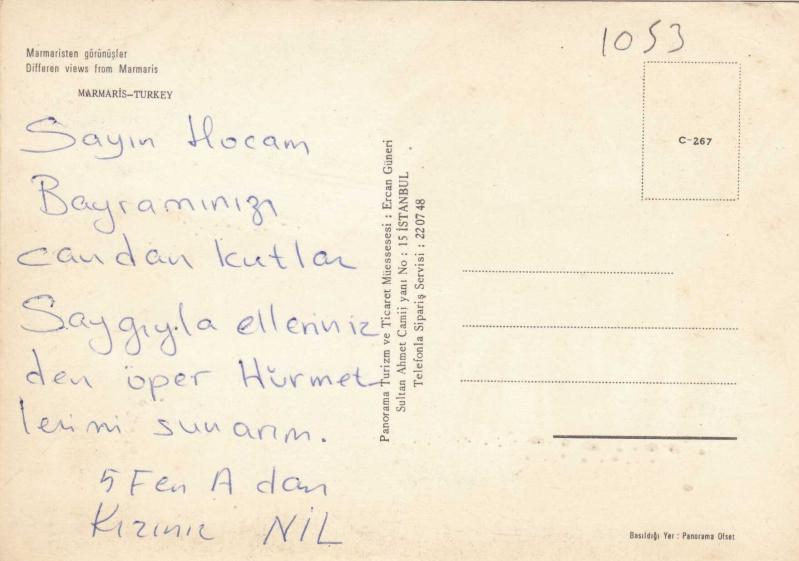 1053
Marmaristen görünüşler
Differen views from Marmaris
MARMARİS-TURKEY
C-267
Sayın Hocam
Bayramınızı
candan kutlar
Saygıyla elleriniz
den öper Hürmet
lerimi sunarım.
5 Fen A dan
Kızınız NİL
Panorama Turizm ve Ticaret Müessesesi : Ercan Güneri
Sultan Ahmet Camij yanı No : 15 İSTANBUL
Telefonla Sipariş Servisi : 22 07 48
Basıldığı Yer : Panorama Ofset